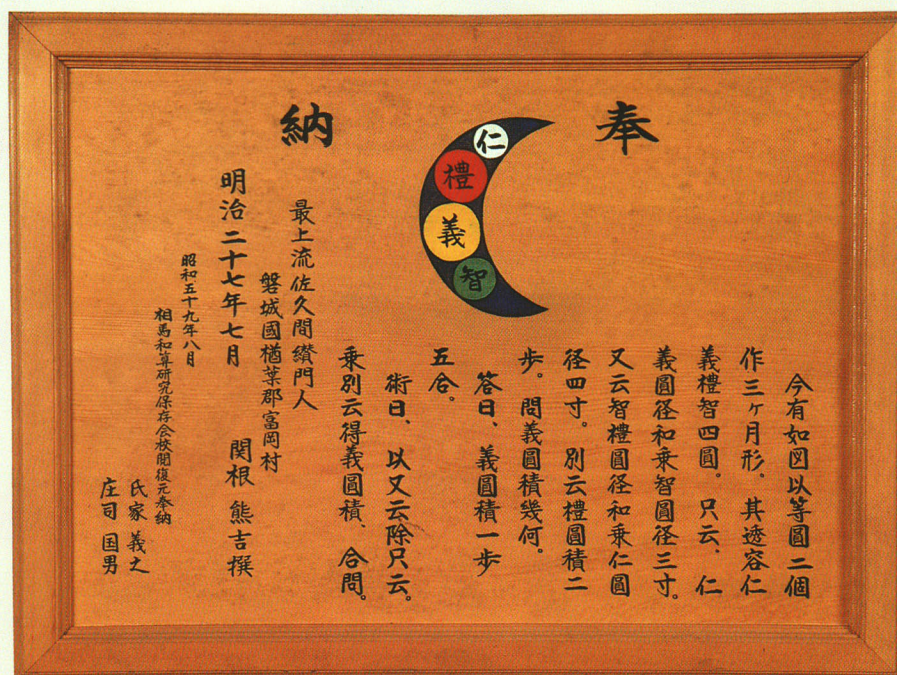 奉
納
仁
禮
義
智
今有如図以等圓二個
作三ヶ月形。其透容仁
義禮智四圓。只云、仁
義圓径和乗智圓径三寸。
又云智禮圓径和乗仁圓
径四寸。別云禮圓積二
歩。問義圓積幾何。
答曰、義圓積一歩
五合。
術曰、以又云除只云。
乗別云得義圓積、合問。
最上流佐久間纉門人
磐城國楢葉郡富岡村
関根熊吉撰
明治二十七年七月
昭和五十九年八月
相馬和算研究保存会校閲復元奉納
氏家義之
庄司国男